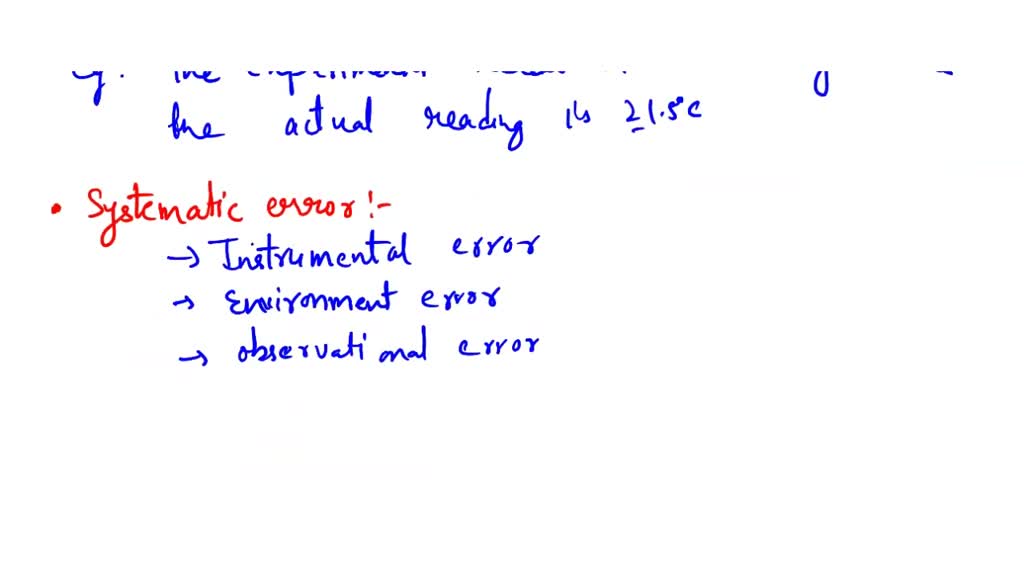 the actual reading is 21.5°C
• Systematic error:-
→ Instrumental error
→ Environment error
→ observational error